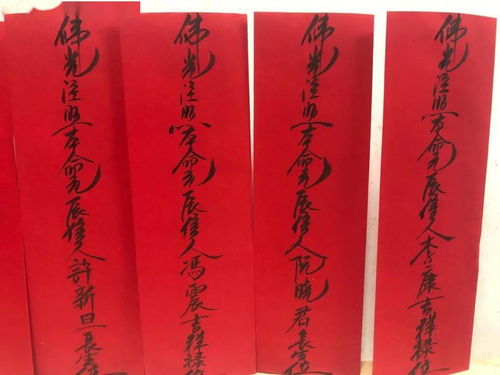 佛光注照本命元辰佳人李康吉祥祿位
佛光注照本命元辰佳人阮曉君長生位
佛光注照本命元辰佳人馮震吉祥祿位
佛光注照本命元辰佳人許新旦長生位